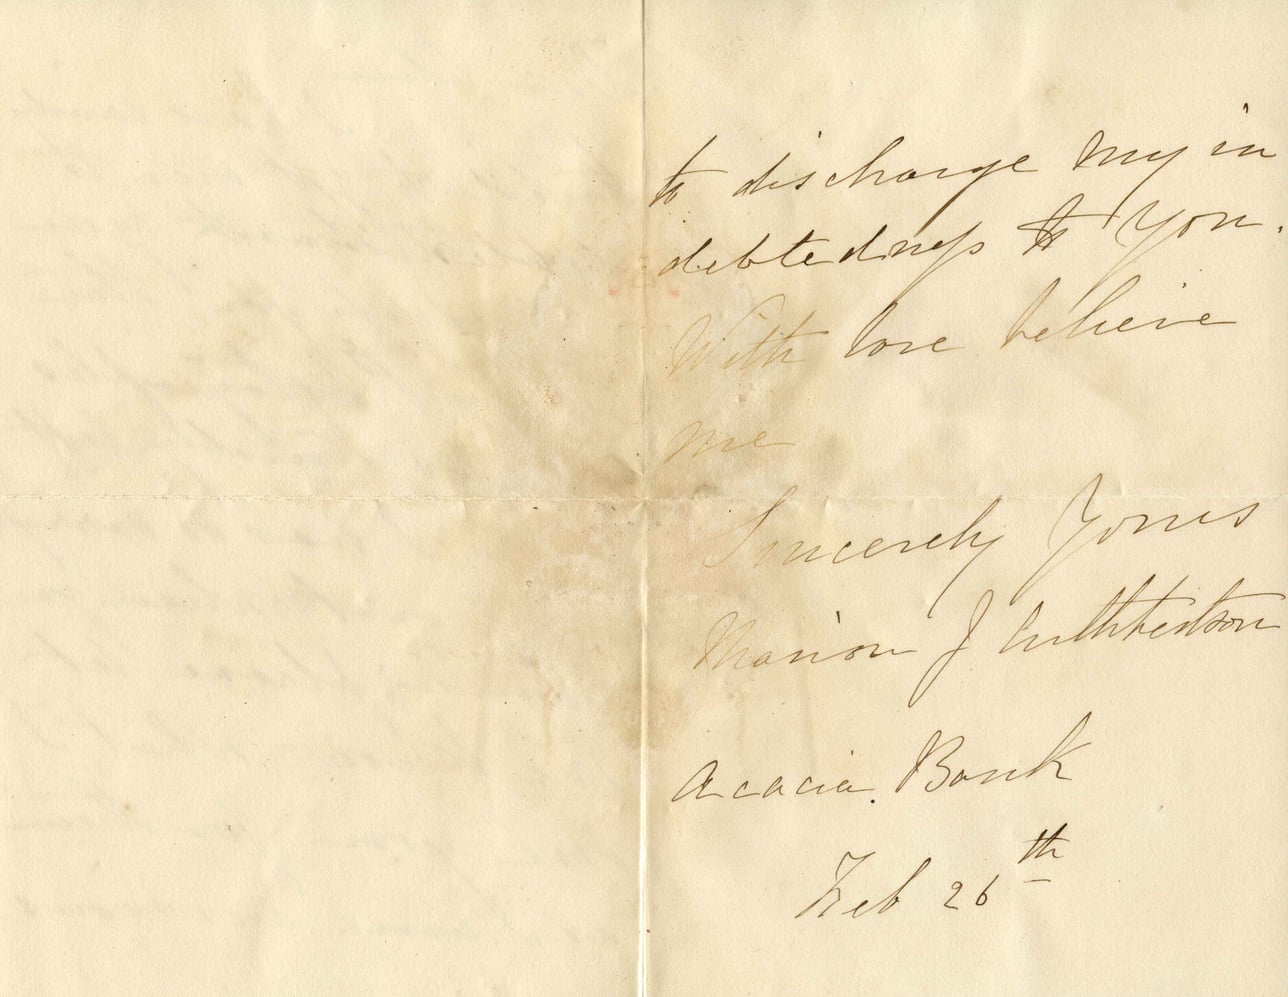 to discharge my in
debtedness to you.
With love believe
me
Sincerely Yours
Marion J Cuthbertson
Acacia Bank
Feb 26th